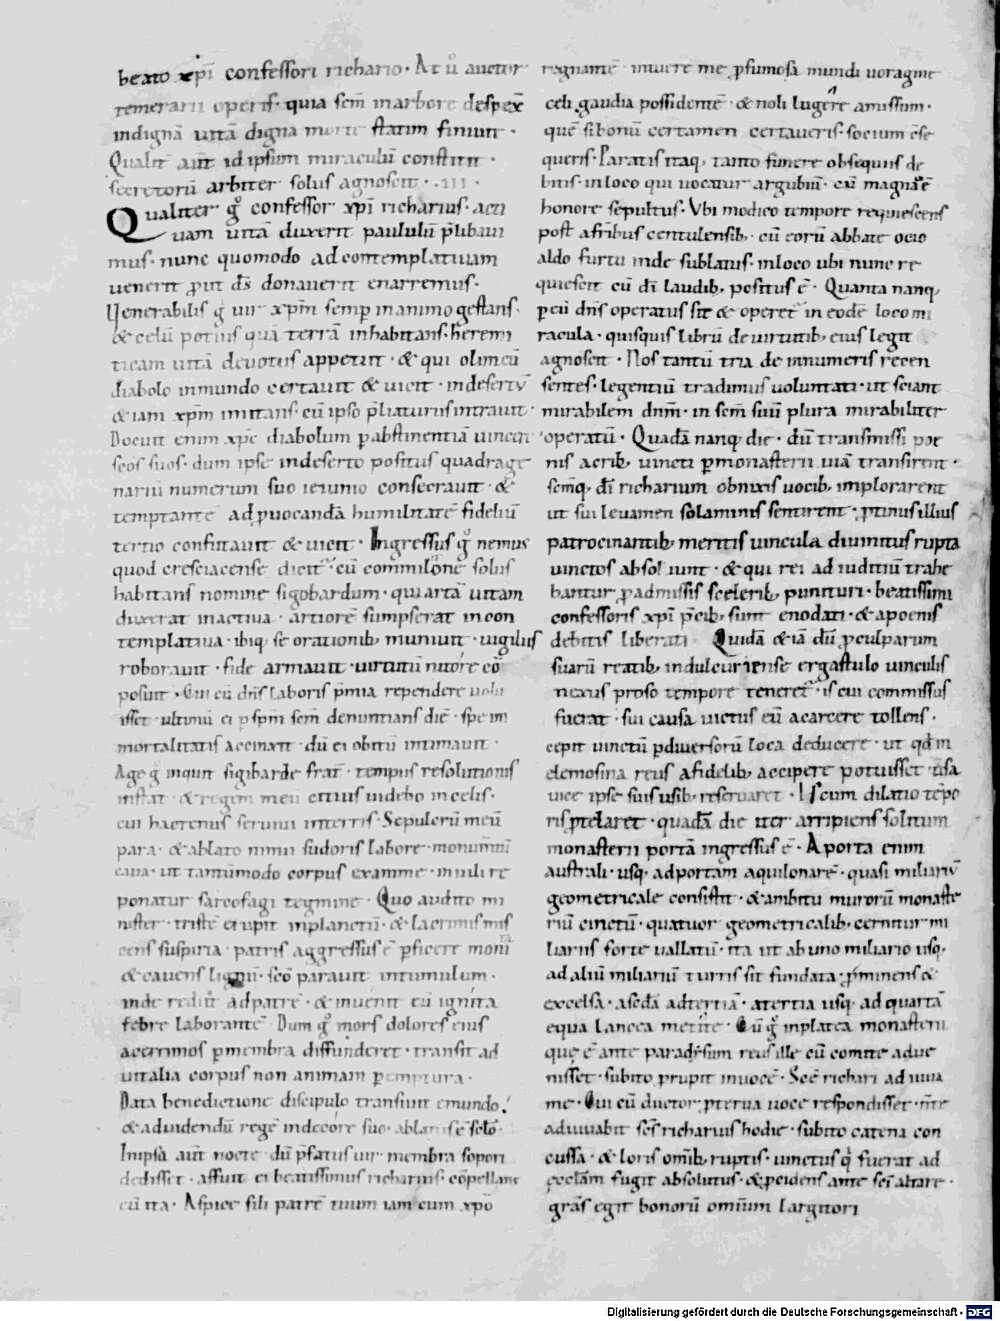 beato xp̄i confessori richario· At ů auctor
temerarii operis· quia sem̄ in arbore despex̄
indignā uitā digna morte statim finiuit·
Qualit̄ aūt id ipsum miraculū constitit·
secretorū arbiter solus agnoscit· .III.
Qualiter g̊ confessor xp̄i richarius· acti
uam uitā duxerit paululū p̄libaui
mus· nunc quomodo ad contemplatiuam
uenerit ꝓut d̄s donauerit enarremus·
Uenerabilis g̊ uir xp̄m semp̄ in animo gestans·
& celū potius quā terrā inhabitans· heremi
ticam uitā deuotus appetiit· & qui olim cū
diabolo in mundo certauit & uicit· in desertū
& iam xp̄m imitans· cū ipso p̄liaturus intrauit·
Docuit enim xp̄c diabolum p̄ abstinentiā uincere
sc̄os suos· dum ipse in deserto positus quadrage
nariū numerum suo ieiunio consecrauit· &
temptantē ad ꝓuocandā humilitatē fideliū
tertio confutauit & uicit· Ingressus g̊ nemus
quod cresciacense dicit̄· cū commilitone solus
habitans nomine sigobardum· qui artā uitam
duxerat in actiua· artiorē sumpserat in con
templatiua· ibiq; se orationib; muniuit· uigiliis
roborauit· fide armauit· uirtutū nitore cō
posuit· Cui cū dn̄s laboris p̄mia rependere uolu
isset· ultimū ei p̄ sp̄m sc̄m denuntians diē· spe im
mortalitatis accinxit· dū ei obitū intimauit·
Age g̊ inquit sigibarde frat̄· tempus resolutionis
instat· & regem meū citius uidebo in celis·
cui hactenus seruiui in terris· Sepulcrū meū
para· & ablato nimii sudoris labore· monumtū
caua· ut tantūmodo corpus exanime· muni re
ponatur sarcofagi tegmine· Quo audito mi
nister· tristē erupit in planctū· & lacrimis mis
cens suspiria· patris aggressus ē p̄ficere monita
& cauens lignū· sc̄o parauit in tumulum·
inde rediit̄ ad patrē· & inuenit cū ignita
febre laborantē· Dum g̊ mors dolores eius
acerrimos p̄ membra diffunderet· transit ad
uitalia corpus non animam p̄emptura·
Data benedictione discipulo transiuit e mundo·
& ad uidendū regē in decore suo· ablatus ē sc̄lo·
In ipsa aūt nocte· dū p̄fatus uir membra sopori
dedisset· affuit ei beatissimus richarius· cōpellans
eū ita· Aspice fili patrē tuum iam cum xp̄o
regnantē· intuere me p̄fumosa mundi uoragine
celi gaudia possidentē· & noli lugere amissum·
quē sibonū certamen certaueris· socium ēe
queris· Paratis itaq; tanto funere obsequiis de
bitis· in loco qui uocatur argubiū· cū magno ē
honore sepultus· Ubi modico tempore requiescens
post a fr̄ibus centulensib; cū eorū abbate ocio
aldo furtu inde sublatus· in loco ubi nunc re
quiescit cū dī laudib; positus ē· Quanta nanq;
p̄ eū dn̄s operatus sit & operet̄ in eodē loco mi
racula· quisquis librū de uirtutib; eius legit
agnoscit· Nos tantū tria de innumeris recen
sentes· legentiū tradimus uoluntati· ut sciant
mirabilem dn̄m· in sc̄m suū plura mirabiliter
operatū· Quadā nanq; die· dū transmissi poe
nis acrib; uincti p̄ monasterii uiā transirent·
sc̄mq; dī richarium obnixis uocib; implorarent
ut sui leuamen solaminis sentirent· ꝓtinus illius
patrocinantib; meritis uincula diuinitus rupta
uinctos absoluunt· & qui rei ad iuditiū trahe
bantur ꝓ admissis scelerib; punituri· beatissimi
confessoris xp̄i p̄cib; sunt enodati· & a poenis
debitis liberati· Quidā & iā dū ꝓ culparum
suarū reatib; in dulcuriense ergastulo uinculis
nexus proso tempore teneret̄· is cui commissus
fuerat· sui causa uictus eū a carcere tollens·
cepit uinctū p̄ diuersorū loca deducere· ut qd̄ in
elemosina reus a fidelib; accipere potuisset· uersa
uice ipse suis usib; reseruaret· Is cum dilatio tēpo
ris ꝓtelaret· quadā die iter arripiens solitum
monasterii portā ingressus ē· A porta enim
australi· usq; ad portam aquilonarē· quasi miliariū
geometricale consistit· & ambitu murorū monaste
riū cinctū· quatuor geometricalib; cernitur mi
liariis forte uallatū· ita ut ab uno miliario usq;
ad aliū miliariū turris sit fundata· p̄minens &
excelsa· a sc̄da ad tertiā· a tertia usq; ad quartā
equa lancea metite· Cū g̊ in platea monasterii
quę ē ante paradysum reus ille cū comite adue
nisset· subito ꝓrupit in uocē· Sc̄e richari adiuua
me· Cui cū ductor ꝓterua uoce respondisset· n̄te
adiuuabit sc̄s richarius hodie· subito catena con
cussa· & loris om̄ib; ruptis· uinctus q̄ fuerat ad
ęcclam fugit absolutus· & ꝓcidens ante sc̄i altare·
grās egit bonorū omnium largitori
Digitalisierung gefördert durch die Deutsche Forschungsgemeinschaft - DFG